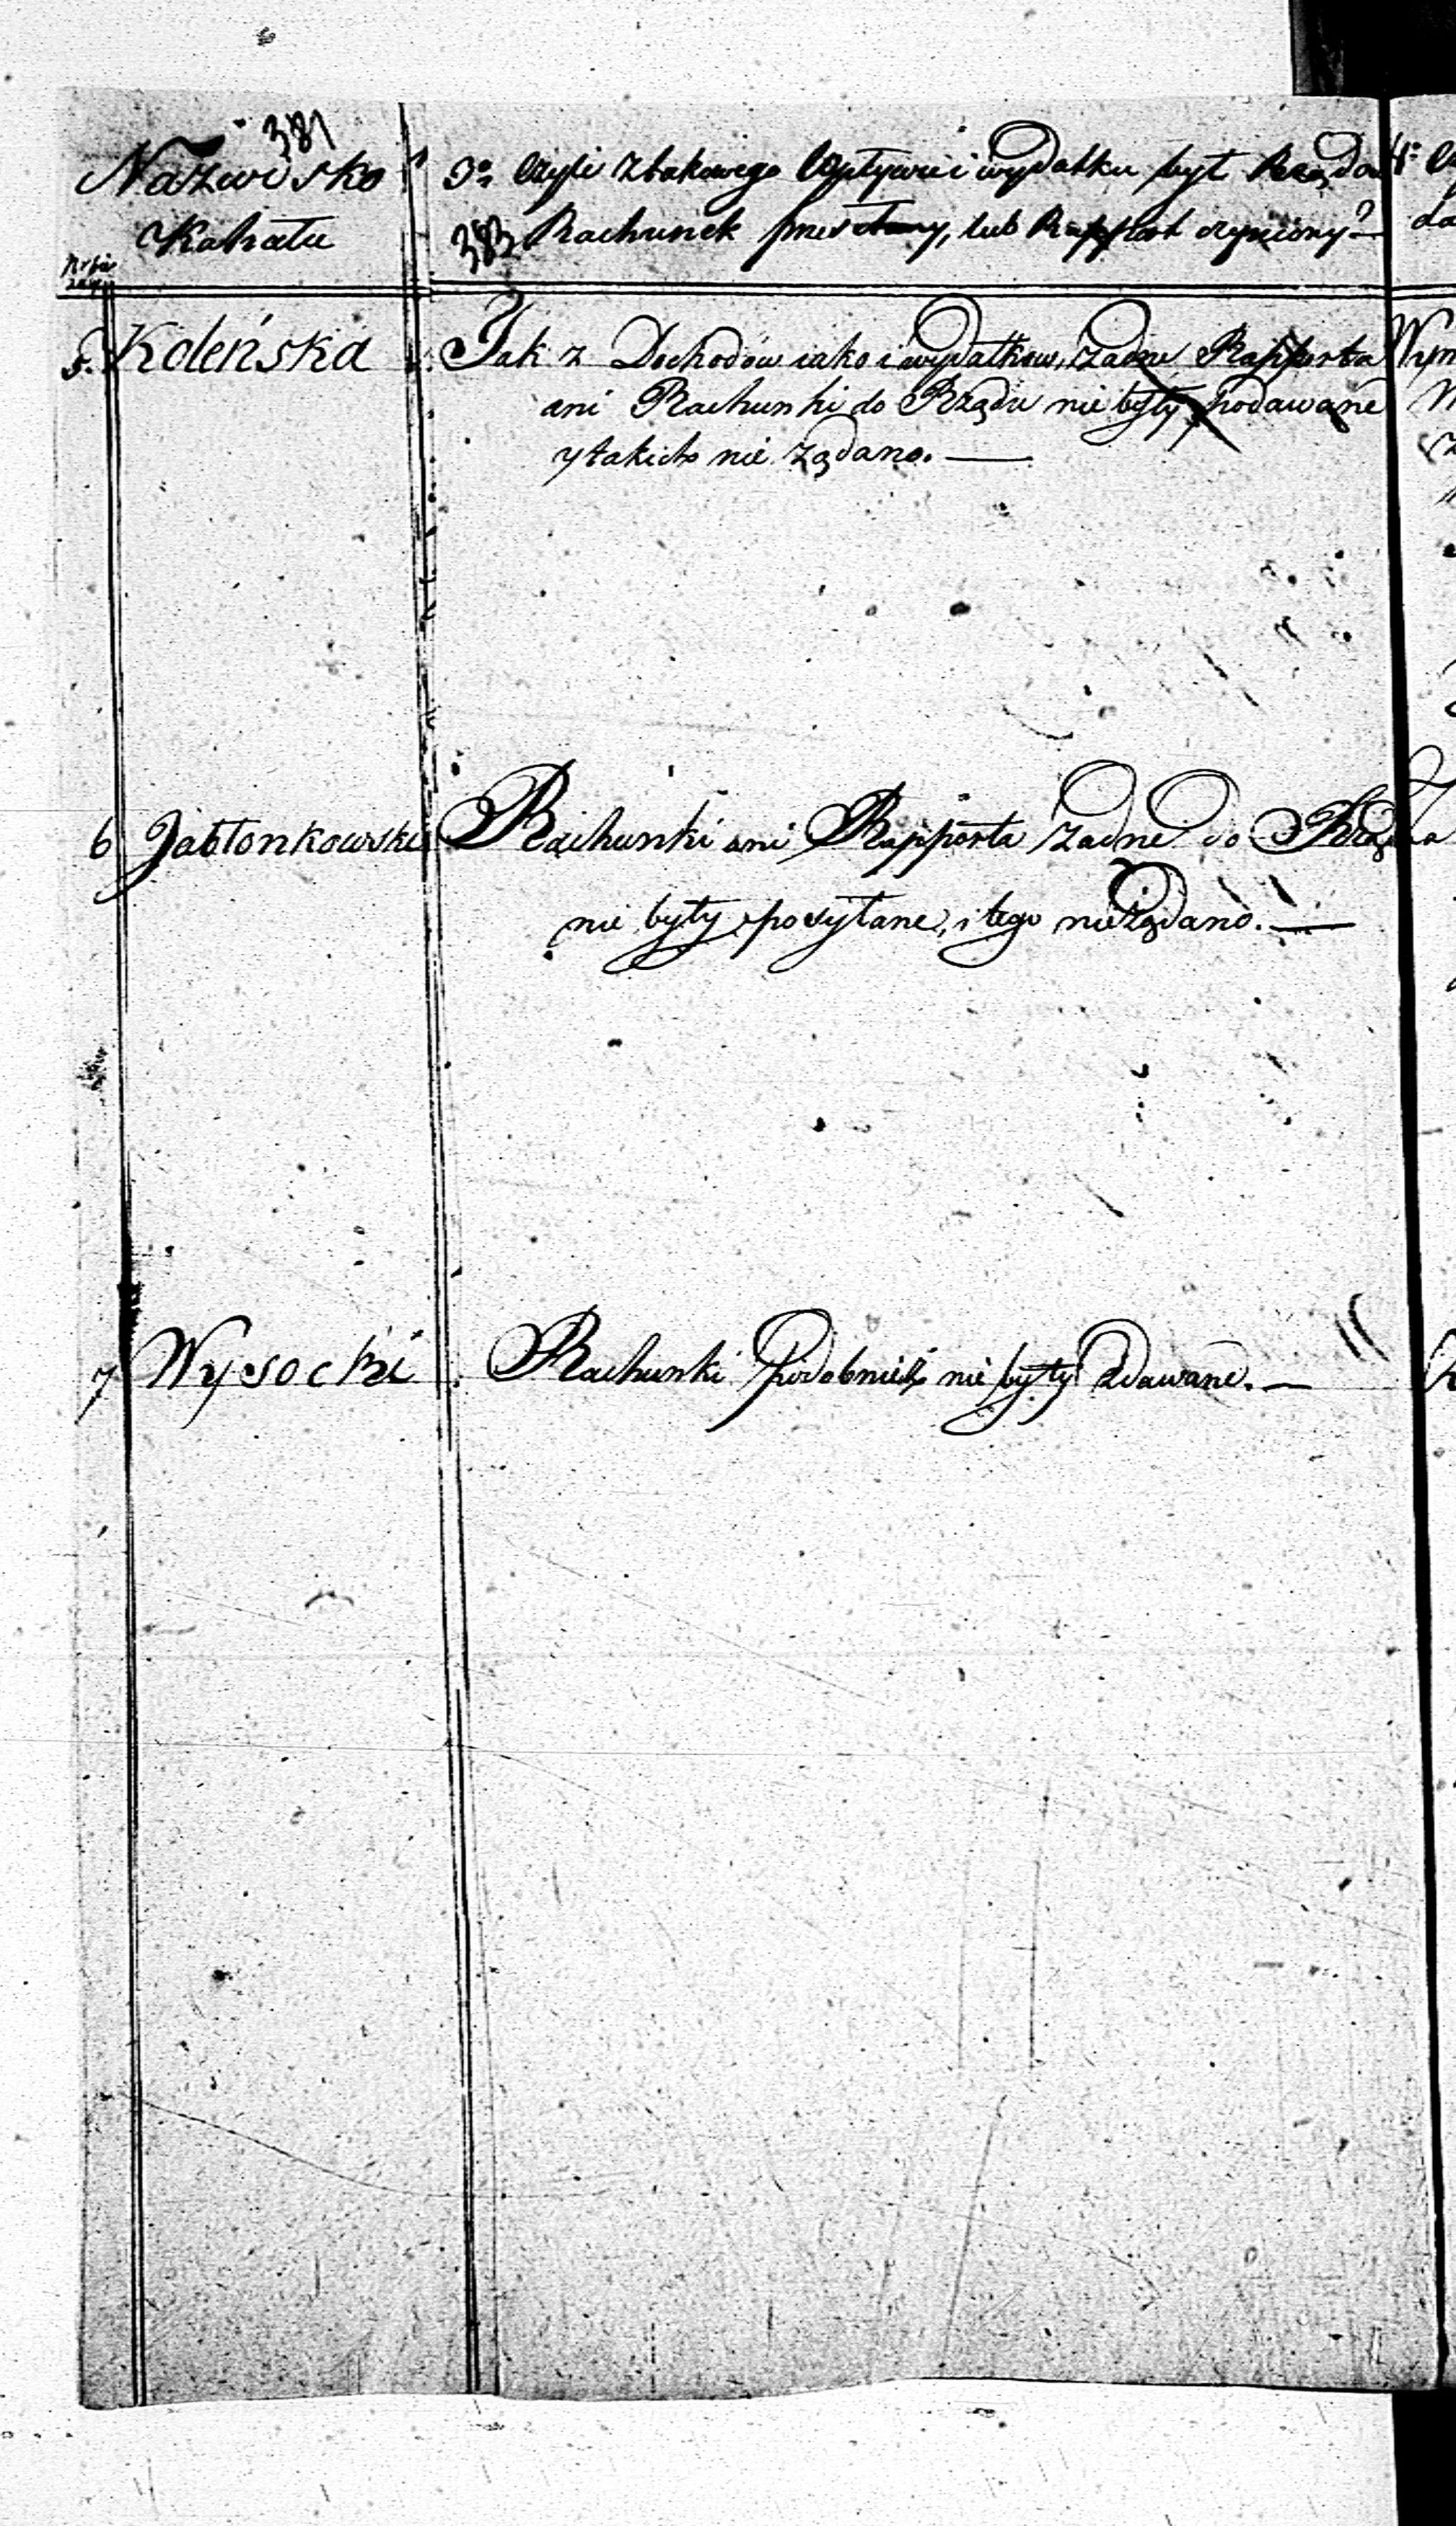 381
Nazwisko
Kahału
3o. Czyli z takowego Wpływu i wydatku był Rządow
383 Rachunek przesłany, lub Rapport czyniony?
5. Koleńska
Jak z Dochodów iako i wydatkow, żadne Rapporta
ani Rachunki do Rządu nie były podawane
y takich nie żądano. —
6 Jabłonkowski
Rachunki ani Rapporta żadne do Rządu
nie były posyłane, i tego nie żądano. —
7 Wysocki
Rachunki podobnież nie były zdawane. —